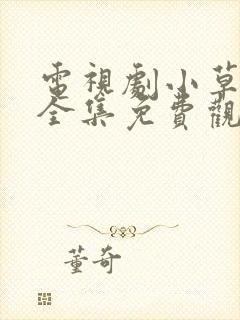 電視劇小草
全集免費觀
董奇